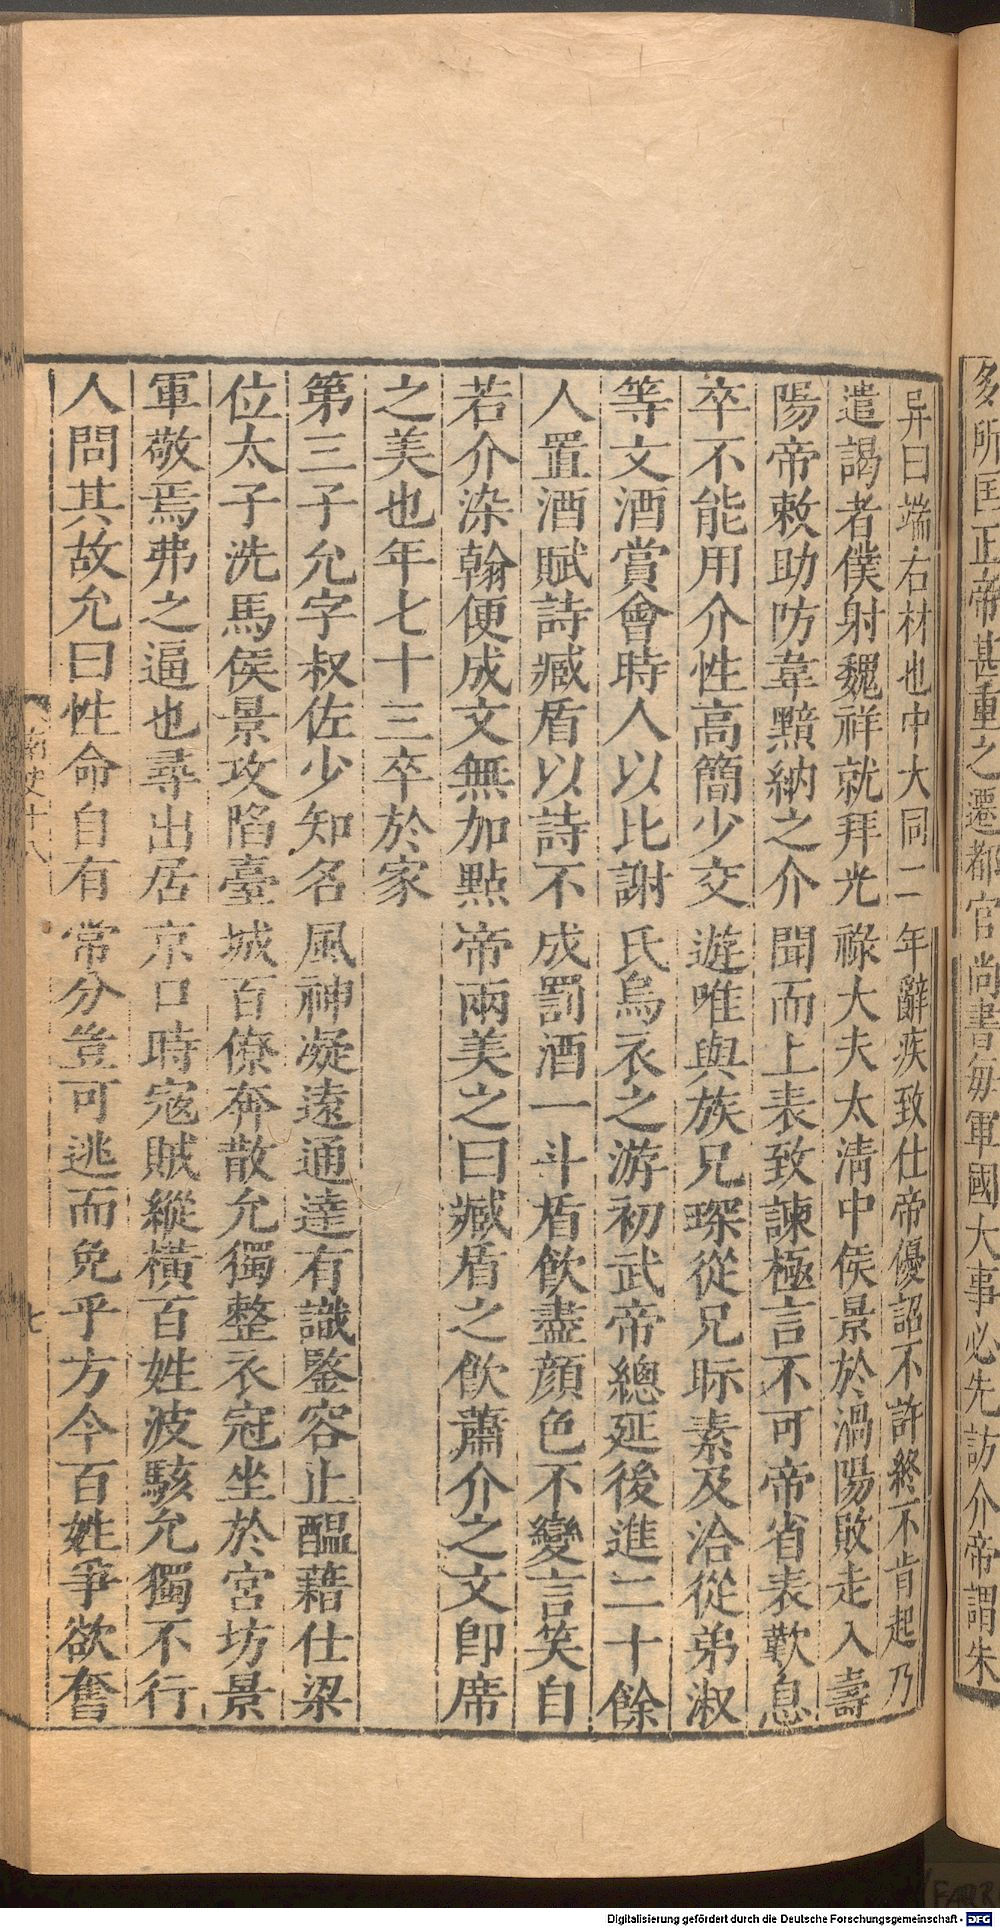 多所匡正帝甚重之遷都官尚書每軍國大事必先訪介帝謂朱
异曰端右材也中大同二年辭疾致仕帝優詔不許終不肯起乃
遣謁者僕射魏祥就拜光祿大夫太清中侯景於渦陽敗走入壽
陽帝敕助防韋黯納之介聞而上表致諫極言不可帝省表歎息
卒不能用介性高簡少交遊唯與族兄琛從兄眎素及洽從弟淑
等文酒賞會時人以比謝氏烏衣之游初武帝總延後進二十餘
人置酒賦詩臧盾以詩不成罰酒一斗盾飲盡顔色不變言笑自
若介染翰便成文無加點帝兩美之曰臧盾之飲蕭介之文即席
之美也年七十三卒於家
第三子允字叔佐少知名風神凝遠通達有識鑒容止醞藉仕梁
位太子洗馬侯景攻陷臺城百僚奔散允獨整衣冠坐於宮坊景
軍敬焉弗之逼也尋出居京口時寇賊縱橫百姓波駭允獨不行
人問其故允曰性命自有常分豈可逃而免乎方今百姓爭欲奮
南史十八
七
Digitalisierung gefördert durch die Deutsche Forschungsgemeinschaft - DFG